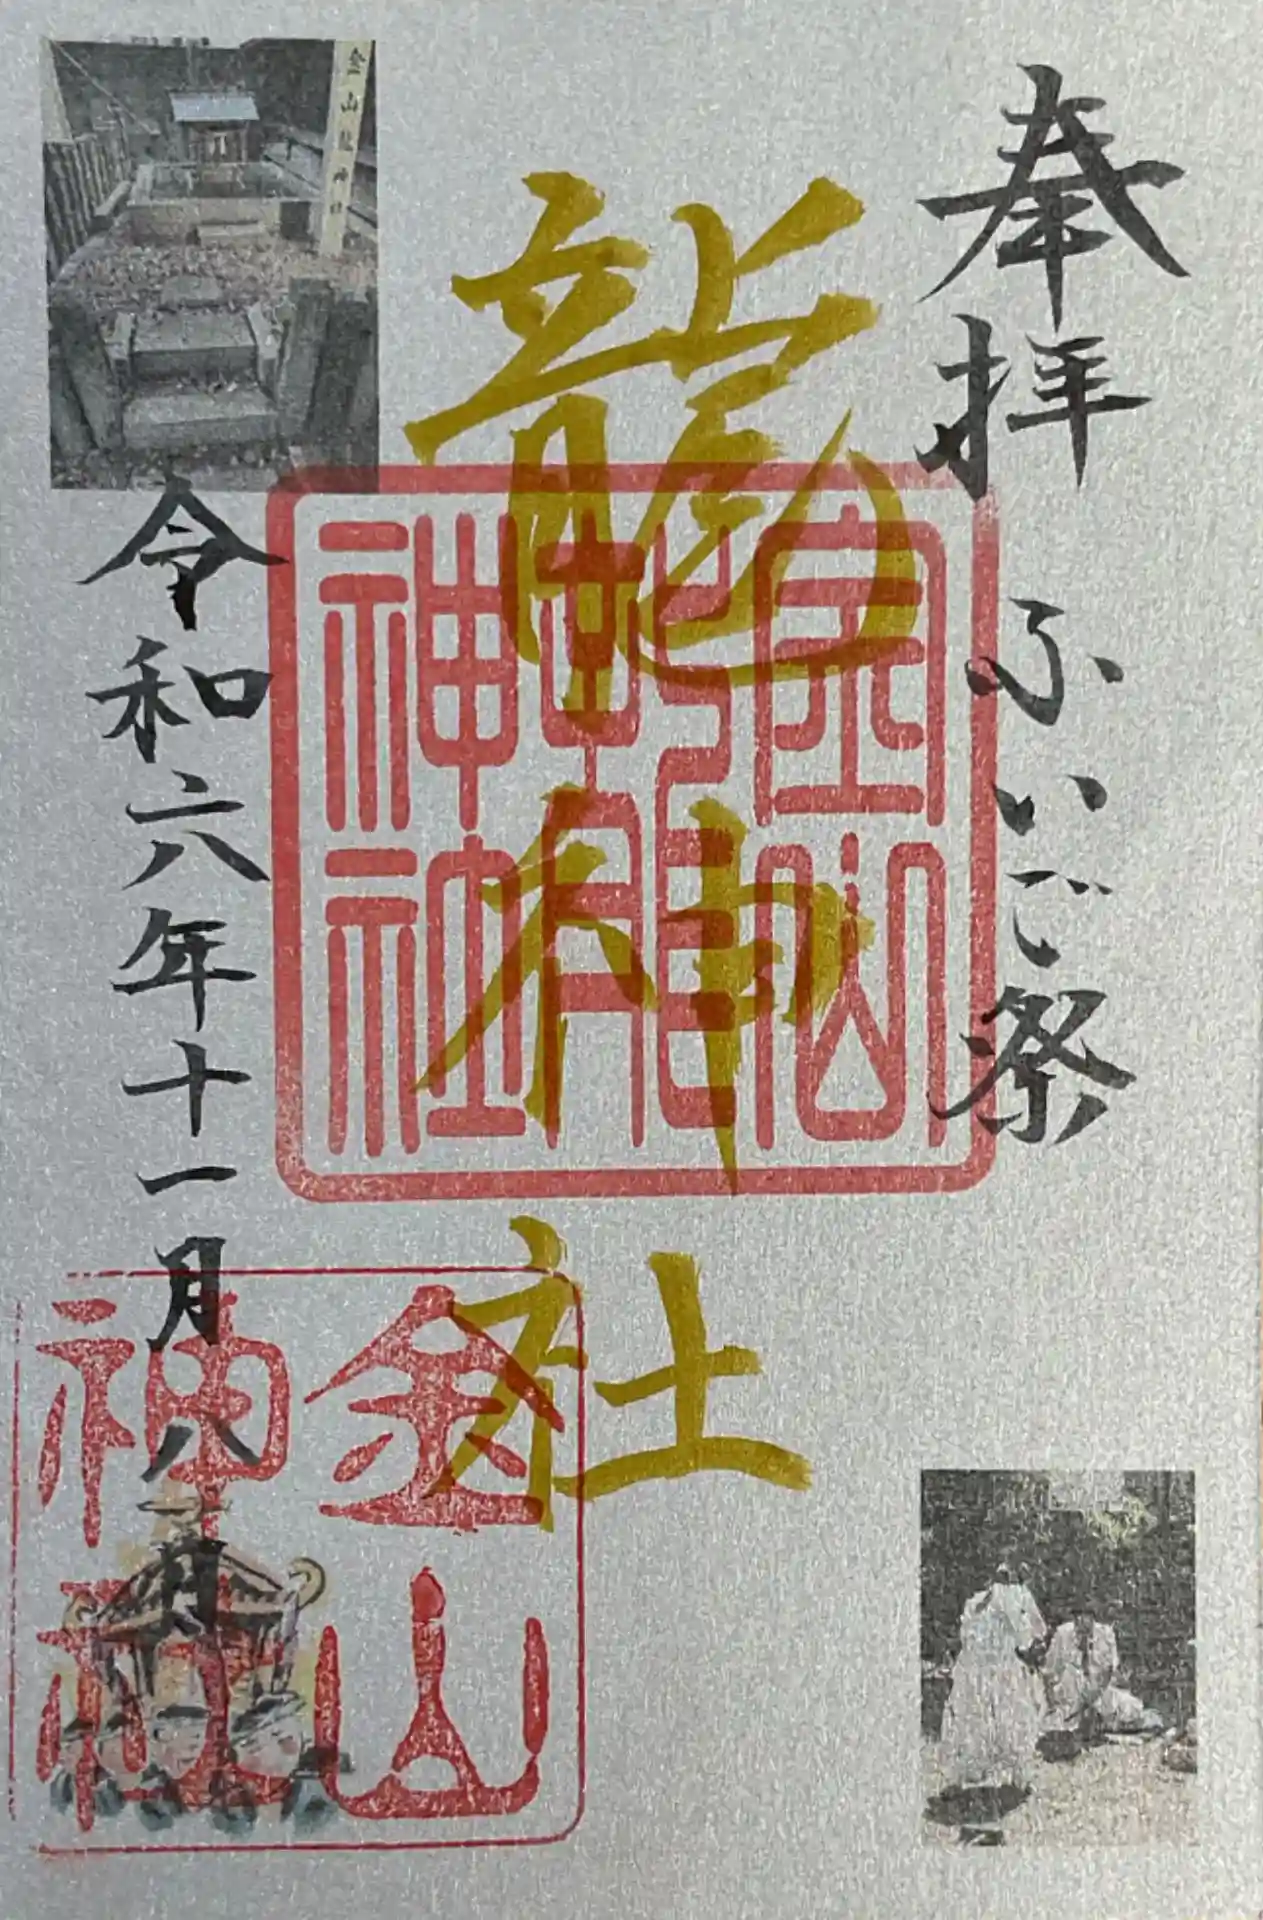 奉拝 ふいご祭
龍神社
金山龍神社
金山
神社
令和六年十一月八日
金山龍神